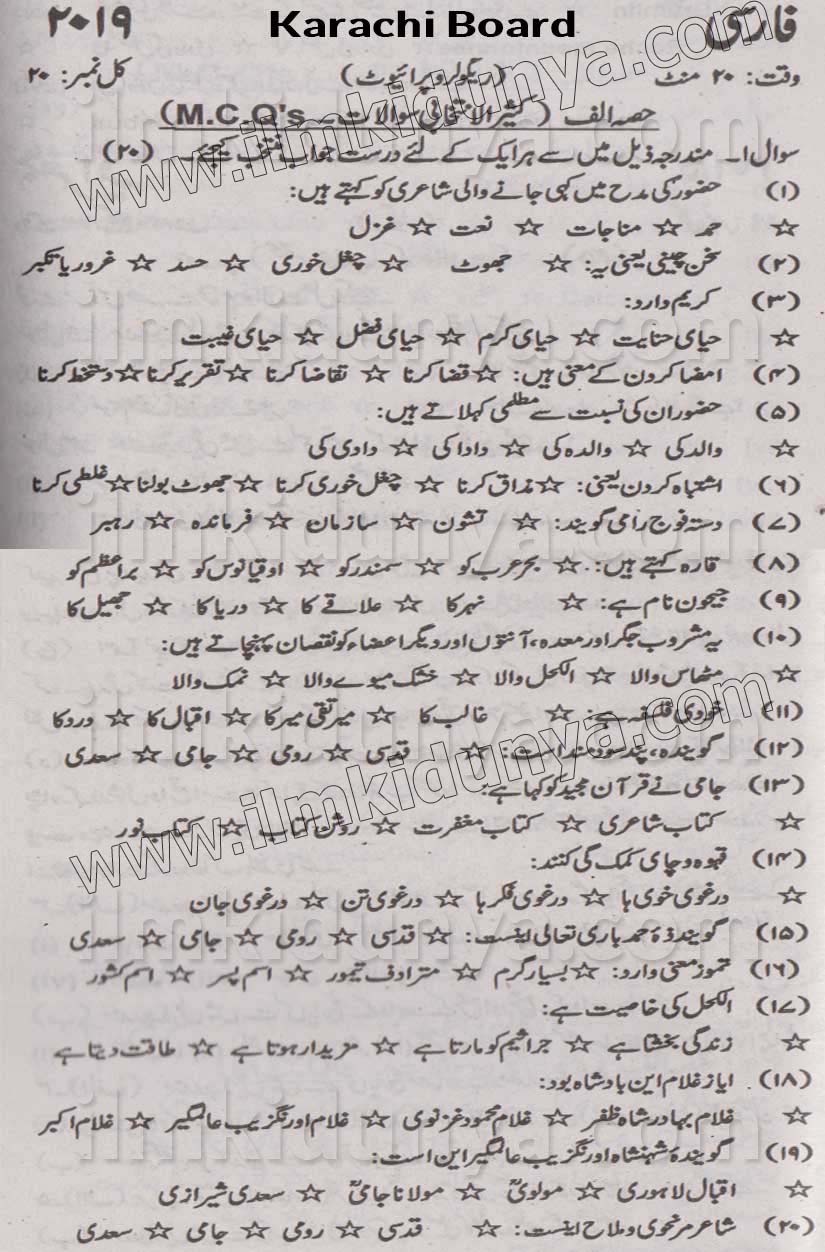 Karachi Board
فارسی ۲۰۱۹
وقت: ۲۰ منٹ (ریگولر و پرائیوٹ) کل نمبر: ۲۰
حصہ الف (کثیر الانتخابی سوالات - M.C.Q's)
سوال ۱۔ مندرجہ ذیل میں سے ہر ایک کے لئے درست جواب منتخب کیجئے۔ (۲۰)
(۱) حضورؐ کی مدح میں کہی جانے والی شاعری کو کہتے ہیں:
☆ حمد ☆ مناجات ☆ نعت ☆ غزل
(۲) سخن چینی یعنی یہ: ☆ جھوٹ ☆ چغل خوری ☆ حسد ☆ غرور یا تکبر
(۳) کریم دارد:
☆ حیای حنایت ☆ حیای کرم ☆ حیای فضل ☆ حیای غیبت
(۴) امضا کردن کے معنی ہیں: ☆ قضا کرنا ☆ تقاضا کرنا ☆ تقریر کرنا ☆ دستخط کرنا
(۵) حضورؐ ان کی نسبت سے مطلبی کہلاتے ہیں:
☆ والد کی ☆ والدہ کی ☆ دادا کی ☆ دادی کی
(۶) اشتباہ کردن یعنی: ☆ مذاق کرنا ☆ چغل خوری کرنا ☆ جھوٹ بولنا ☆ غلطی کرنا
(۷) دستہ فوج را می گویند: ☆ تشون ☆ سازمان ☆ فرماندہ ☆ رہبر
(۸) قارہ کہتے ہیں: ☆ بحر عرب کو ☆ سمندر کو ☆ اوقیانوس کو ☆ براعظم کو
(۹) جیحون نام ہے: ☆ نہر کا ☆ علاقے کا ☆ دریا کا ☆ جھیل کا
(۱۰) یہ مشروب جگر اور معدہ، آنتوں اور دیگر اعضاء کو نقصان پہنچاتے ہیں:
☆ مٹھاس والا ☆ الکحل والا ☆ خشک میوے والا ☆ نمک والا
(۱۱) خودی فلسفہ ہے: ☆ غالب کا ☆ میر تقی میر کا ☆ اقبال کا ☆ درد کا
(۱۲) گویندہ، پند سودمند است: ☆ قدسی ☆ رومی ☆ جامی ☆ سعدی
(۱۳) جامی نے قرآن مجید کو کہا ہے:
☆ کتاب شاعری ☆ کتاب مغفرت ☆ روشن کتاب ☆ کتاب نور
(۱۴) قہوہ و چای کمک گی کنند:
☆ در غوی خوی ہا ☆ در غوی فکر ہا ☆ در غوی تن ☆ در غوی جان
(۱۵) گویندۂ حمد باری تعالی اینست: ☆ قدسی ☆ رومی ☆ جامی ☆ سعدی
(۱۶) تموز معنی دارد: ☆ بسیار گرم ☆ مترادف تیمور ☆ اسم پسر ☆ اسم کشور
(۱۷) الکحل کی خاصیت ہے:
☆ زندگی بخشتا ہے ☆ جراثیم کو مارتا ہے ☆ مزیدار ہوتا ہے ☆ طاقت دیتا ہے
(۱۸) ایاز غلام این بادشاہ بود:
☆ غلام بہادر شاہ ظفر ☆ غلام محمود غزنوی ☆ غلام اورنگزیب عالمگیر ☆ غلام اکبر
(۱۹) گویندۂ شہنشاہ اورنگزیب عالمگیر این است:
☆ اقبال لاہوری ☆ مولویؒ ☆ مولانا جامیؒ ☆ سعدی شیرازی
(۲۰) شاعر مرد نحوی و ملاح اینست: ☆ قدسی ☆ رومی ☆ جامی ☆ سعدی
www.ilmkidunya.com
www.ilmkidunya.com